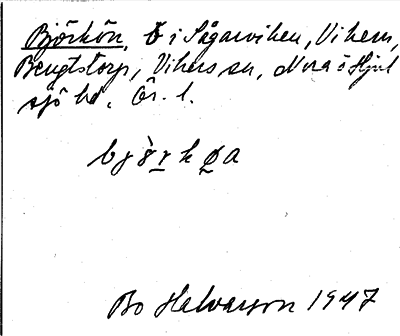 Björkön, Ö i Sågarviken, Vikern,
Bengtstorp, Vikers sn, Nora o Hjul
sjö hd, Ör. l.
bjö̀rkøa
Bo Halvarson 1947